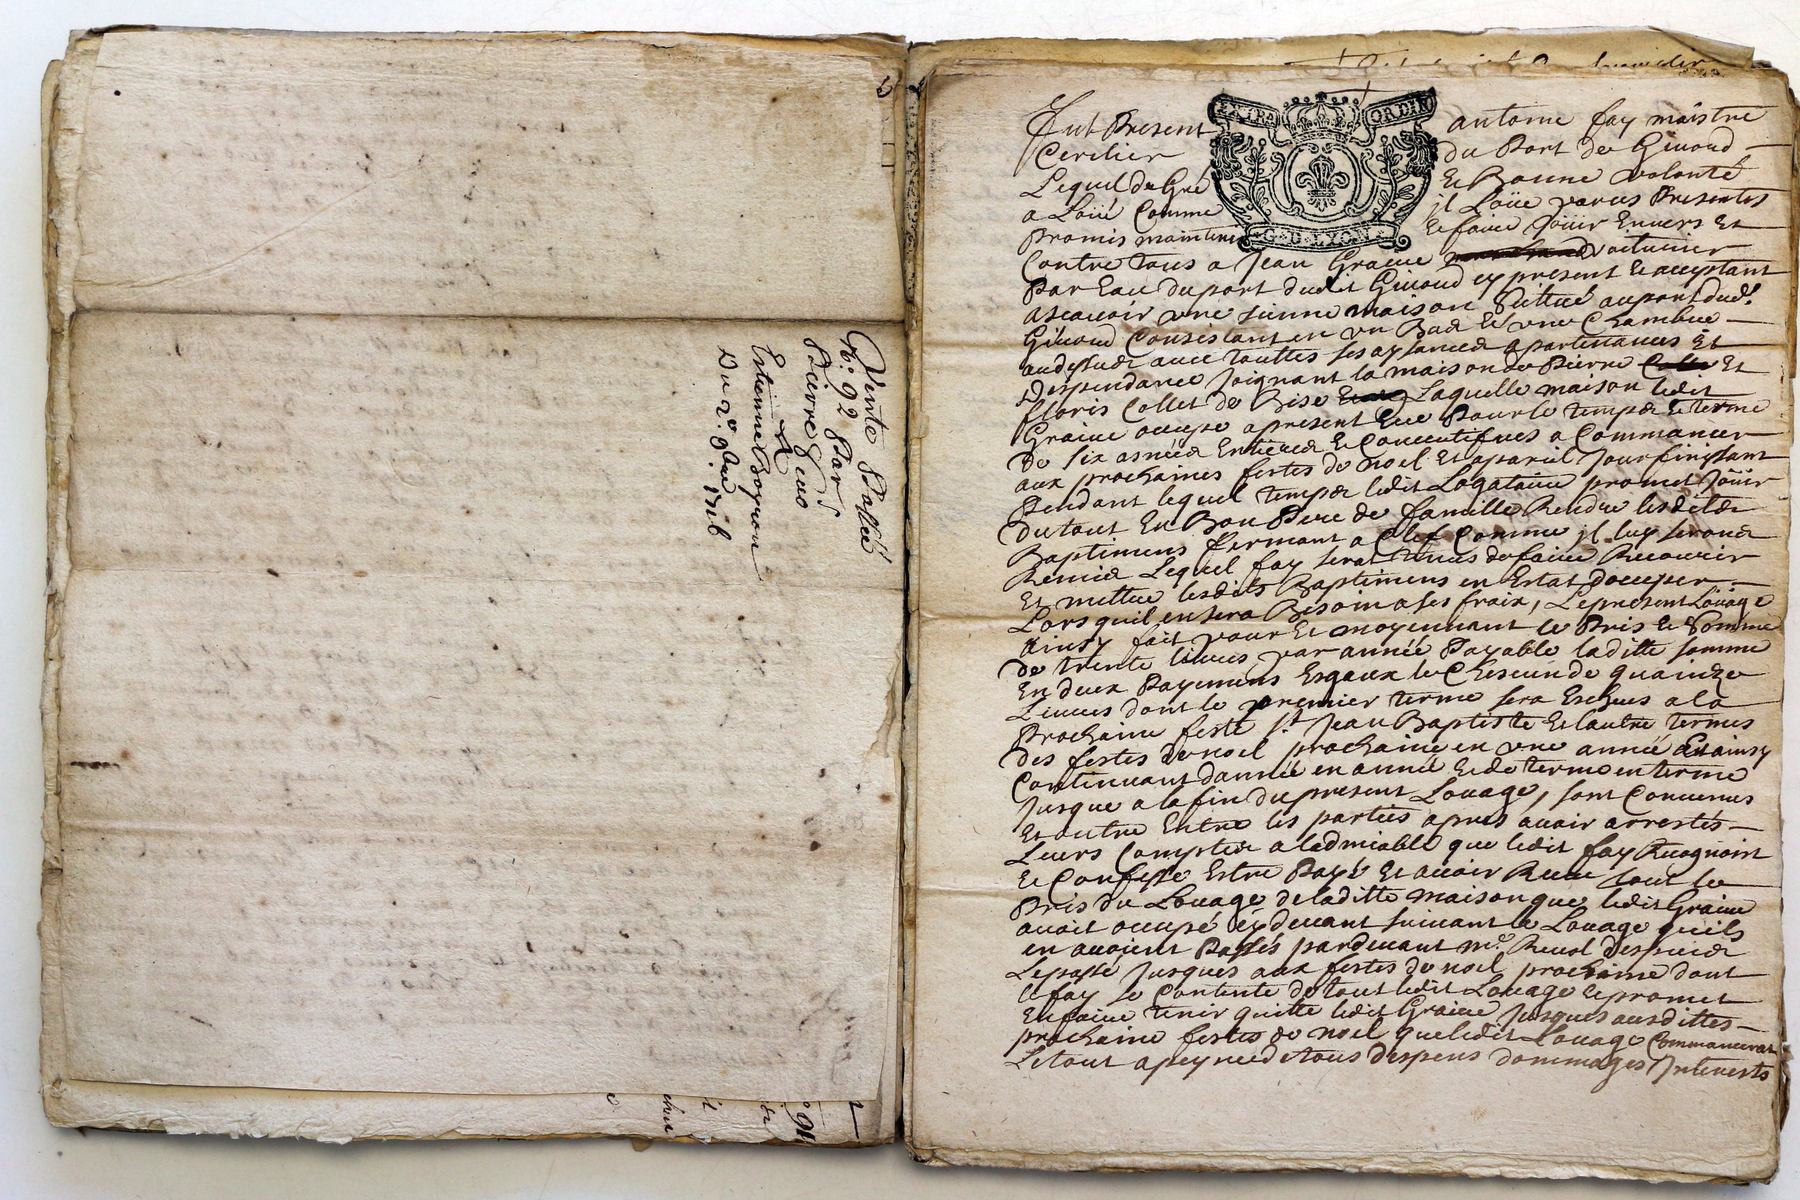 Vente Passée
Pierre
Estienne Bogron
Du 2e 9bre 1716
EXTRA ORDIN
G. D. LYON
Fut Present antoine fay maistre
Cerclier du Port de Giuord
Lequel de Gré Et Bonne volonté
a Loüé Comme jl Loüe par ces Presentes
Promis maintenir Et faire Joüir Envers Et
Contre tous a Jean Graine voiturier
Par Eau du port dudit Giuord cy present Et acceptant
ascauoir vne sienne maison Scittué au port dud.t
Giuord Consistant en vn Bas Et vne Chambre
audessus auec touttes ses aysances apartenances Et
Despendance Joignant la maison de Pierre Et
floris Collet de Bise Laquelle maison ledit
Graine occupe apresent Et ce Pour le temps Et terme
De six année Entieres Et Consecutifues a Commancer
aux prochaines festes de noel Et apareil Jour finissant
Pendant lequel temps ledit Logataire promet Joüir
Du tout En Bon Pere de famille Rendre lesdits
Baptimens fermant a Clef Comme jl luy seront
Remis Lequel fay serat tenus de faire Recouurir
Et mettre lesdits Baptimens en Estat d'occuper
Lors quil en sera Besoin a ses fraix, Le present Loüage
ainsy fait pour Et moyennant le Pris Et Somme
De trente liures par année Payable laditte somme
En deux Payemens Esgaux le Chescun de quainze
Liures dont le premier terme sera Escheus a la
Prochaine feste St. Jean Baptiste Et lautre termes
des festes de noel prochaine en vne année Et ainsy
Continuant d'année en année Et de terme en terme
Jusque a la fin du present Louage, sont Conuenus
Et outre Entre les parties apres auoir arrestés
Leurs Comptes a ladmiable que ledit fay Recognoist
Et Confesse Estre Payé Et auoir Receu tout le
Pris du Louage de laditte maison que ledit Graine
auoit occupé cy deuant suiuant le Louage quils
en auoient Passés pardeuant me. despuis
Le passé Jusques aux festes de noel prochaine dont
le fay se Contente de tout ledit Louage Et promet
En faire tenir quitte ledit Graine Jusques ausdittes
prochaine festes de noel que ledit Louage Commancerat
Le tout a peyne de tous despens dommages Interests